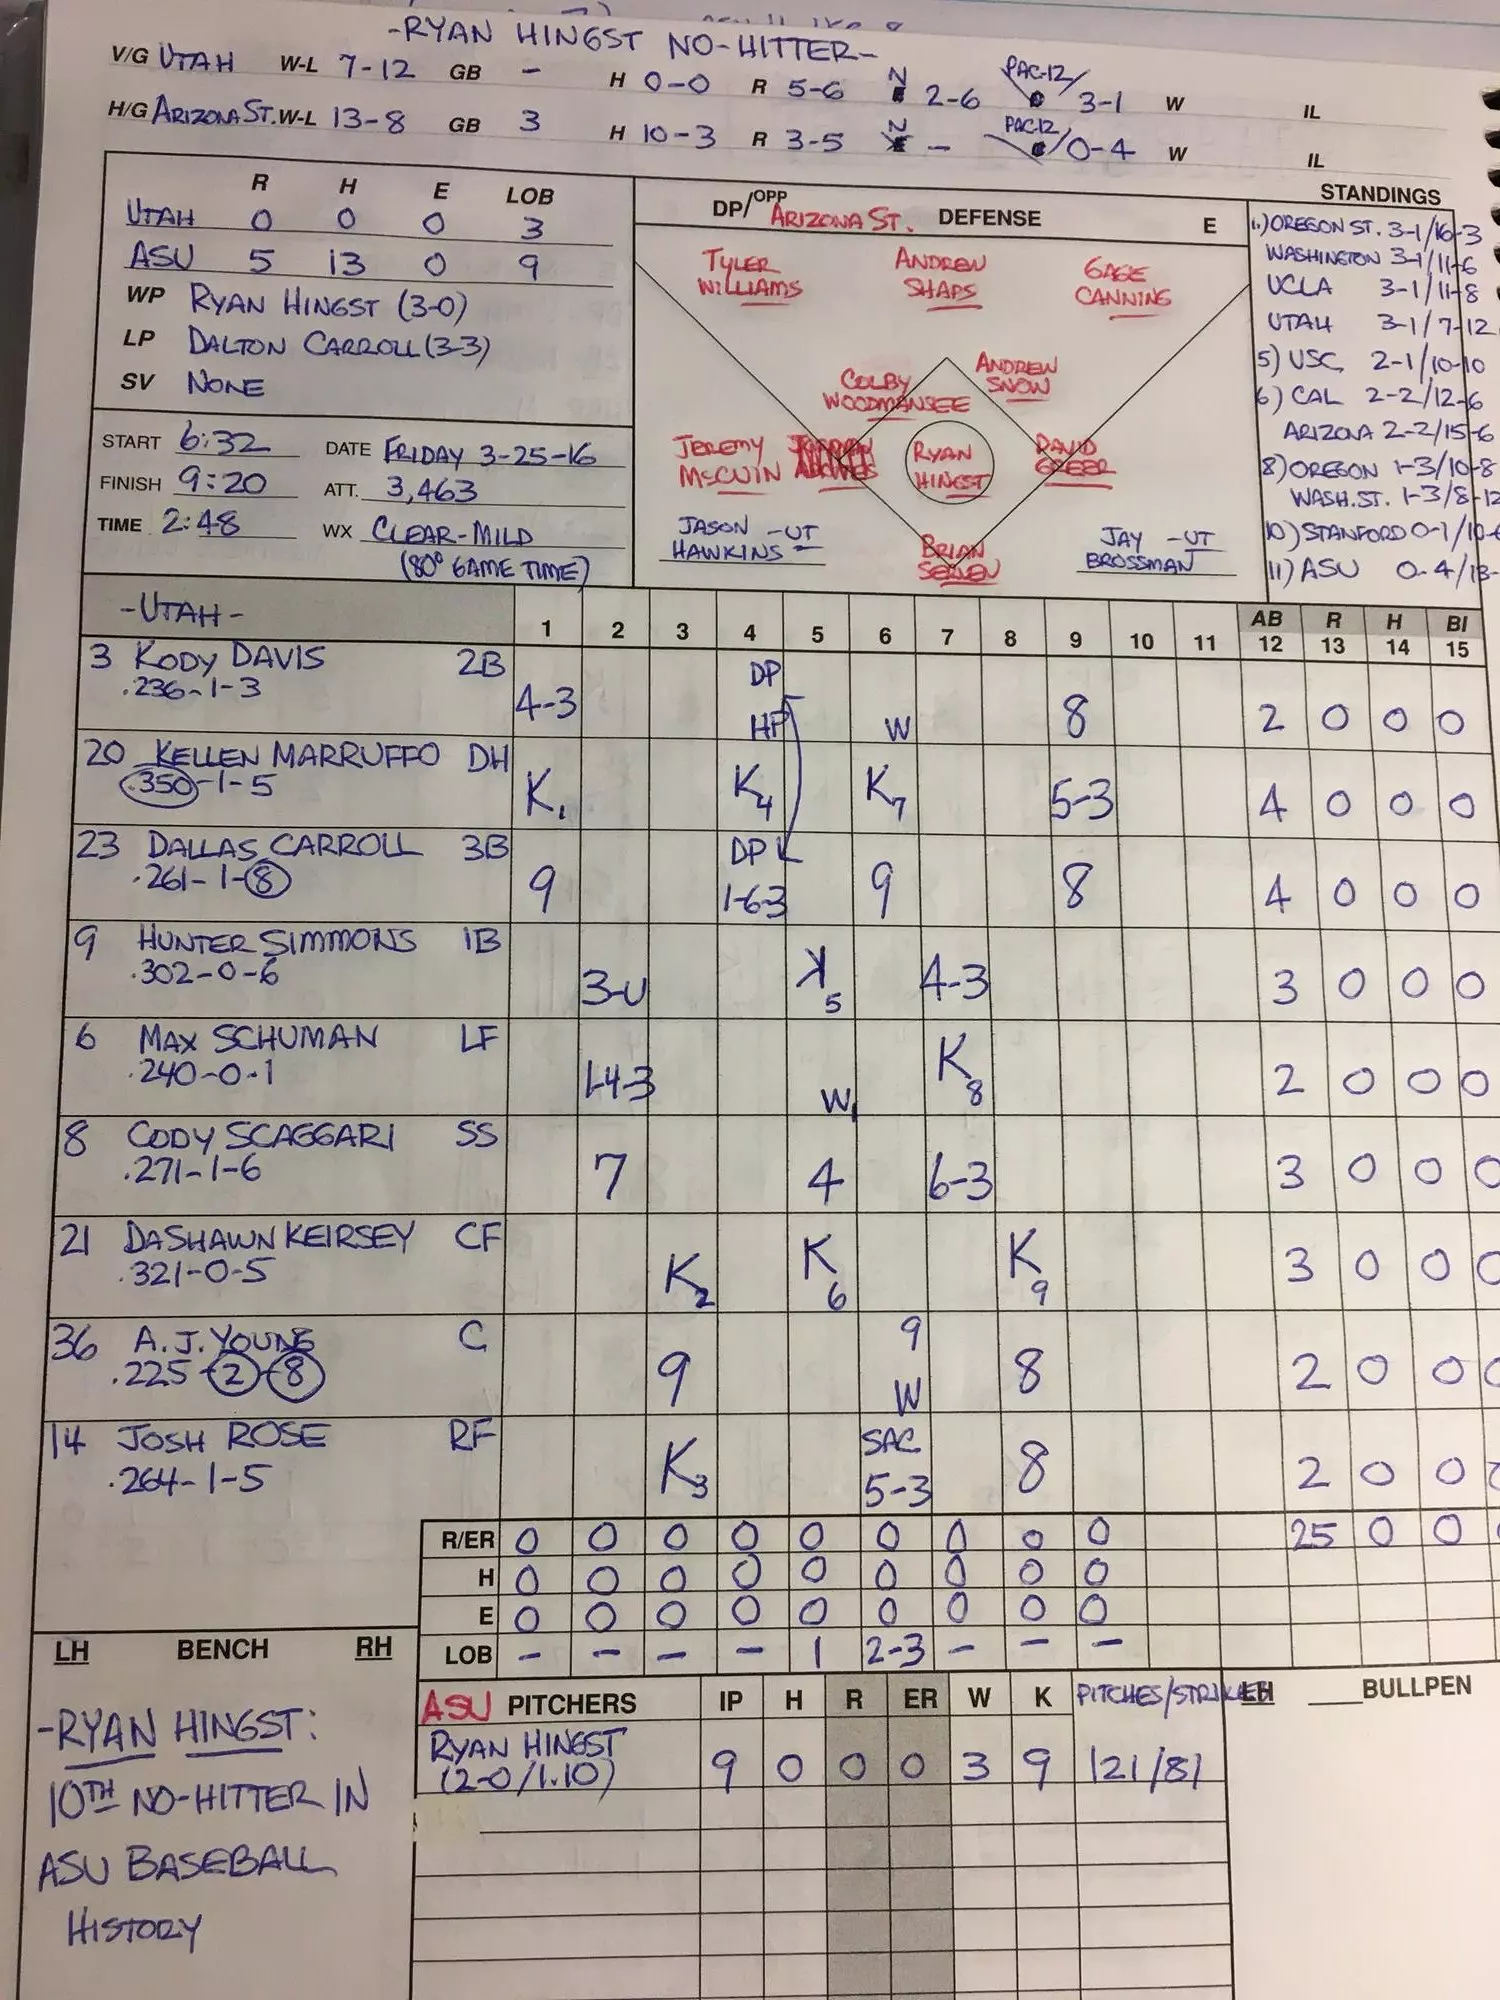 -RYAN HINGST NO-HITTER-
V/G UTAH W-L 7-12 GB - H 0-0 R 5-6 N 2-6 PAC-12/ 3-1 W IL
H/G ARIZONA ST. W-L 13-8 GB 3 H 10-3 R 3-5 N - PAC-12/ 0-4 W IL
R H E LOB
UTAH 0 0 0 3
ASU 5 13 0 9
WP RYAN HINGST (3-0)
LP DALTON CARROLL (3-3)
SV NONE
START 6:32 DATE FRIDAY 3-25-16
FINISH 9:20 ATT. 3,463
TIME 2:48 WX CLEAR-MILD
(80° GAME TIME)
DP/OPP ARIZONA ST. DEFENSE E
TYLER WILLIAMS
ANDREW SHAPS
GAGE CANNING
COLBY WOODMANSEE
ANDREW SNOW
JEREMY McCUIN
RYAN HINGST
DAVID GREER
JASON -UT
HAWKINS
BRIAN SERVEN
JAY -UT
BROSSMAN
STANDINGS
1.) OREGON ST. 3-1/16-3
WASHINGTON 3-1/11-6
UCLA 3-1/11-8
UTAH 3-1/7-12
5) USC 2-1/10-10
6) CAL 2-2/12-6
ARIZONA 2-2/15-6
8) OREGON 1-3/10-8
WASH. ST. 1-3/8-12
10) STANFORD 0-1/10-6
11) ASU 0-4/13-
-UTAH- 1 2 3 4 5 6 7 8 9 10 11 AB R H BI
12 13 14 15
3 KODY DAVIS 2B 4-3 DP HP W 8 2 0 0 0
.236-1-3
20 KELLEN MARRUFFO DH K1 K4 K7 5-3 4 0 0 0
.350-1-5
23 DALLAS CARROLL 3B 9 DP 1-6-3 9 8 4 0 0 0
.261-1-8
9 HUNTER SIMMONS 1B 3-U K5 4-3 3 0 0 0
.302-0-6
6 MAX SCHUMAN LF 1-4-3 W K8 2 0 0 0
.240-0-1
8 CODY SCAGGARI SS 7 4 6-3 3 0 0 0
.271-1-6
21 DASHAWN KEIRSEY CF K2 K6 K9 3 0 0 0
.321-0-5
36 A.J. YOUNG C 9 9 W 8 2 0 0 0
.225-2-8
14 JOSH ROSE RF K3 SAC 5-3 8 2 0 0 0
.264-1-5
R/ER 0 0 0 0 0 0 0 0 0 25 0 0
H 0 0 0 0 0 0 0 0 0
E 0 0 0 0 0 0 0 0 0
LOB - - - - 1 2-3 - - -
LH BENCH RH
-RYAN HINGST:
10TH NO-HITTER IN
ASU BASEBALL
HISTORY
ASU PITCHERS IP H R ER W K PITCHES/STRIKES BULLPEN
RYAN HINGST 9 0 0 0 3 9 121/81
(2-0/1.10)